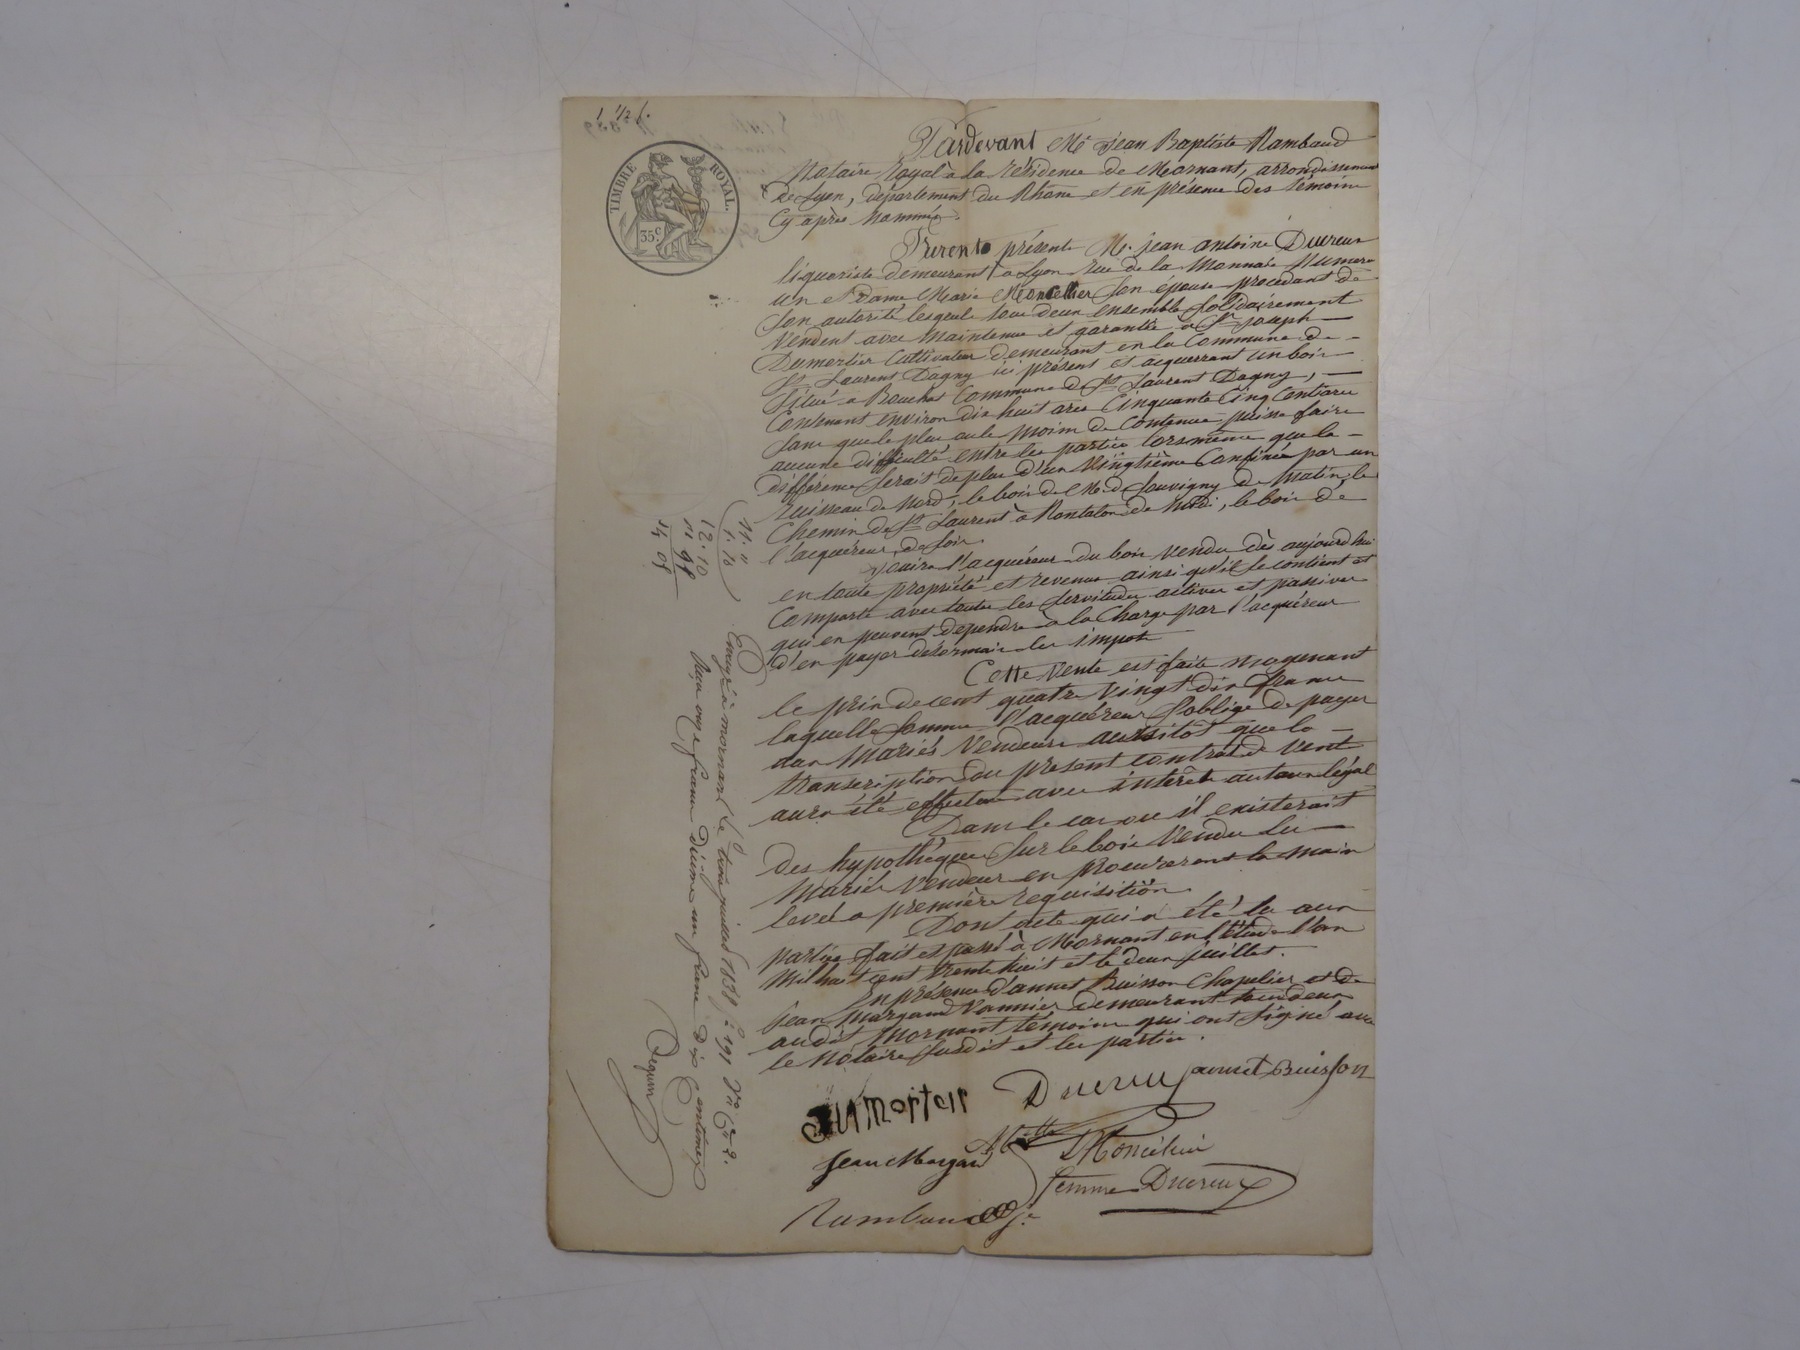 1 1/2 f.
TIMBRE ROYAL.
35c
Pardevant Me jean Baptiste Rambaud
Notaire Royal à la résidence de Mornant, arrondissement
de Lyon, département du Rhône et en présence des témoins
Cy après nommés.
Furent présents Mr. jean antoine Ducreux
liquoriste demeurant a Lyon rue de la Monnaie Numero
un et Dame Marie Moncellier son épouse procedant de
son autorité lesquels tous deux ensemble Solidairement
Vendent avec Maintenue et garantie à Sr joseph
Dumortier Cultivateur demeurant en la Commune de
St Laurent Dagny ici présent et acquerrant un bois
Situé a Bouchat Commune de St Laurent Dagny,
Contenant environ dix huit ares Cinquante Cinq Centiares
sans que le plus ou le moins de Contenue puisse faire
aucune difficulté entre les parties lorsmême que la
différence serait de plus d'un vingtième Confinés par un
ruisseau de Nord, le bois de Mr d Souvigny de Matin, le
Chemin de St Laurent à Rontalon de Midi, le bois de
l'acquéreur de Soir.
Jouira l'acquéreur du bois vendu dès aujourdhui
en toute propriété et revenus ainsi qu'il se contient et
Comporte avec toutes les servitudes actives et passives
qui en peuvent dépendre à la Charge par l'acquéreur
d'en payer désormais les impots
Cette Vente est faite moyenant
le prix de cent quatre vingt dix francs
laquelle somme l'acquéreur s'oblige de payer
aux Mariés Vendeurs aussitôt que la
transcription du présent contrat de vente
aura été effectuée avec intérêts au taux légal
Dans le cas où il existerait
des hypothèques sur le bois vendu les
Mariés Vendeurs en procureront la main
levée a première requisition.
Dont acte qui a été lu aux
parties fait et passé à Mornant en l'étude l'an
Mil huit cent trente huit et le deux juillet.
En présence d'annet Buisson Chapelier et de
jean Margand Vannier demeurant tous deux
au dit Mornant témoins qui ont signé avec
le Notaire susdit et les parties.
Dumortier
Ducreux
annet Buisson
jean Margand
Moncelier
femme Ducreux
Rambaud
11. "
1. 10
12. 10
1. 98
14 08
Enregé à mornant le trois juillet 1838 fo 191 Vo Cse 2.
Reçu onze francs décime un franc Dix Centimes